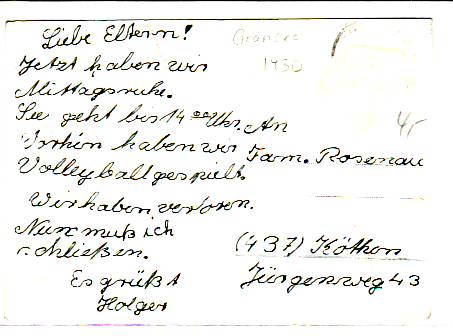 Liebe Eltern!
Jetzt haben wir
Mittagsruhe.
Sie geht bis 14 00 Uhr.
Vorhin haben wir
Volleyball gespielt.
Wir haben verloren.
Nun muß ich
schließen.
Es grüßt
Holger
Gransee
1430
4,-
An
Fam. Rosenau
(437) Köthen
Jürgenweg 43